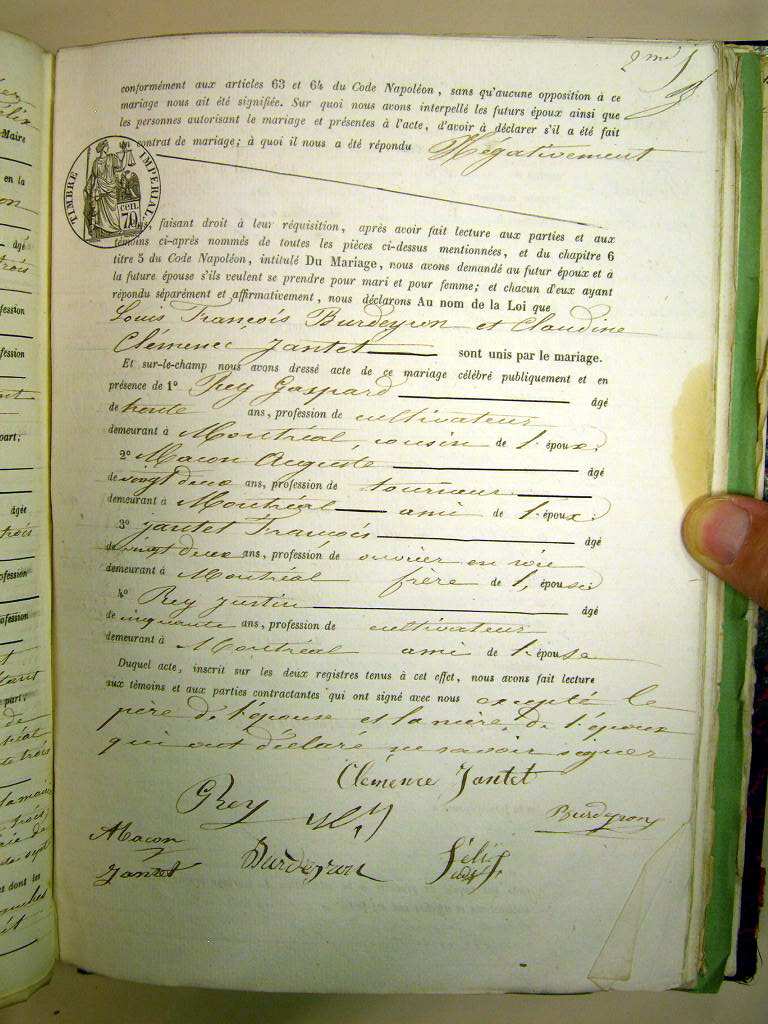 conformément aux articles 63 et 64 du Code Napoléon, sans qu'aucune opposition à ce
mariage nous ait été signifiée. Sur quoi nous avons interpellé les futurs époux ainsi que
les personnes autorisant le mariage et présentes à l'acte, d'avoir à déclarer s'il a été fait
contrat de mariage; à quoi il nous a été répondu Négativement
TIMBRE IMPERIAL
70 CEN.
faisant droit à leur réquisition, après avoir fait lecture aux parties et aux
témoins ci-après nommés de toutes les pièces ci-dessus mentionnées, et du chapitre 6
titre 5 du Code Napoléon, intitulé Du Mariage, nous avons demandé au futur époux et à
la future épouse s'ils veulent se prendre pour mari et pour femme; et chacun d'eux ayant
répondu séparément et affirmativement, nous déclarons Au nom de la Loi que
Louis François Burdeyron et Claudine
Clémence Jantet sont unis par le mariage.
Et sur-le-champ nous avons dressé acte de ce mariage célébré publiquement et en
présence de 1º Rey Gaspard âgé
de trente ans, profession de cultivateur
demeurant à Montréal, cousin de l'époux;
2º Macon Auguste âgé
de vingt deux ans, profession de tourneur
demeurant à Montréal ami de l'époux;
3º Jantet François âgé
de vingt deux ans, profession de ouvrier en soie
demeurant à Montréal frère de l'épouse;
4º Rey Justin âgé
de cinquante ans, profession de cultivateur
demeurant à Montréal ami de l'épouse
Duquel acte, inscrit sur les deux registres tenus à cet effet, nous avons fait lecture
aux témoins et aux parties contractantes qui ont signé avec nous excepté le
père de l'épouse et la mère de l'époux
qui ont déclaré ne savoir signer
Clémence Jantet
Rey
Burdeyron
Macon
Jantet
Burdeyron